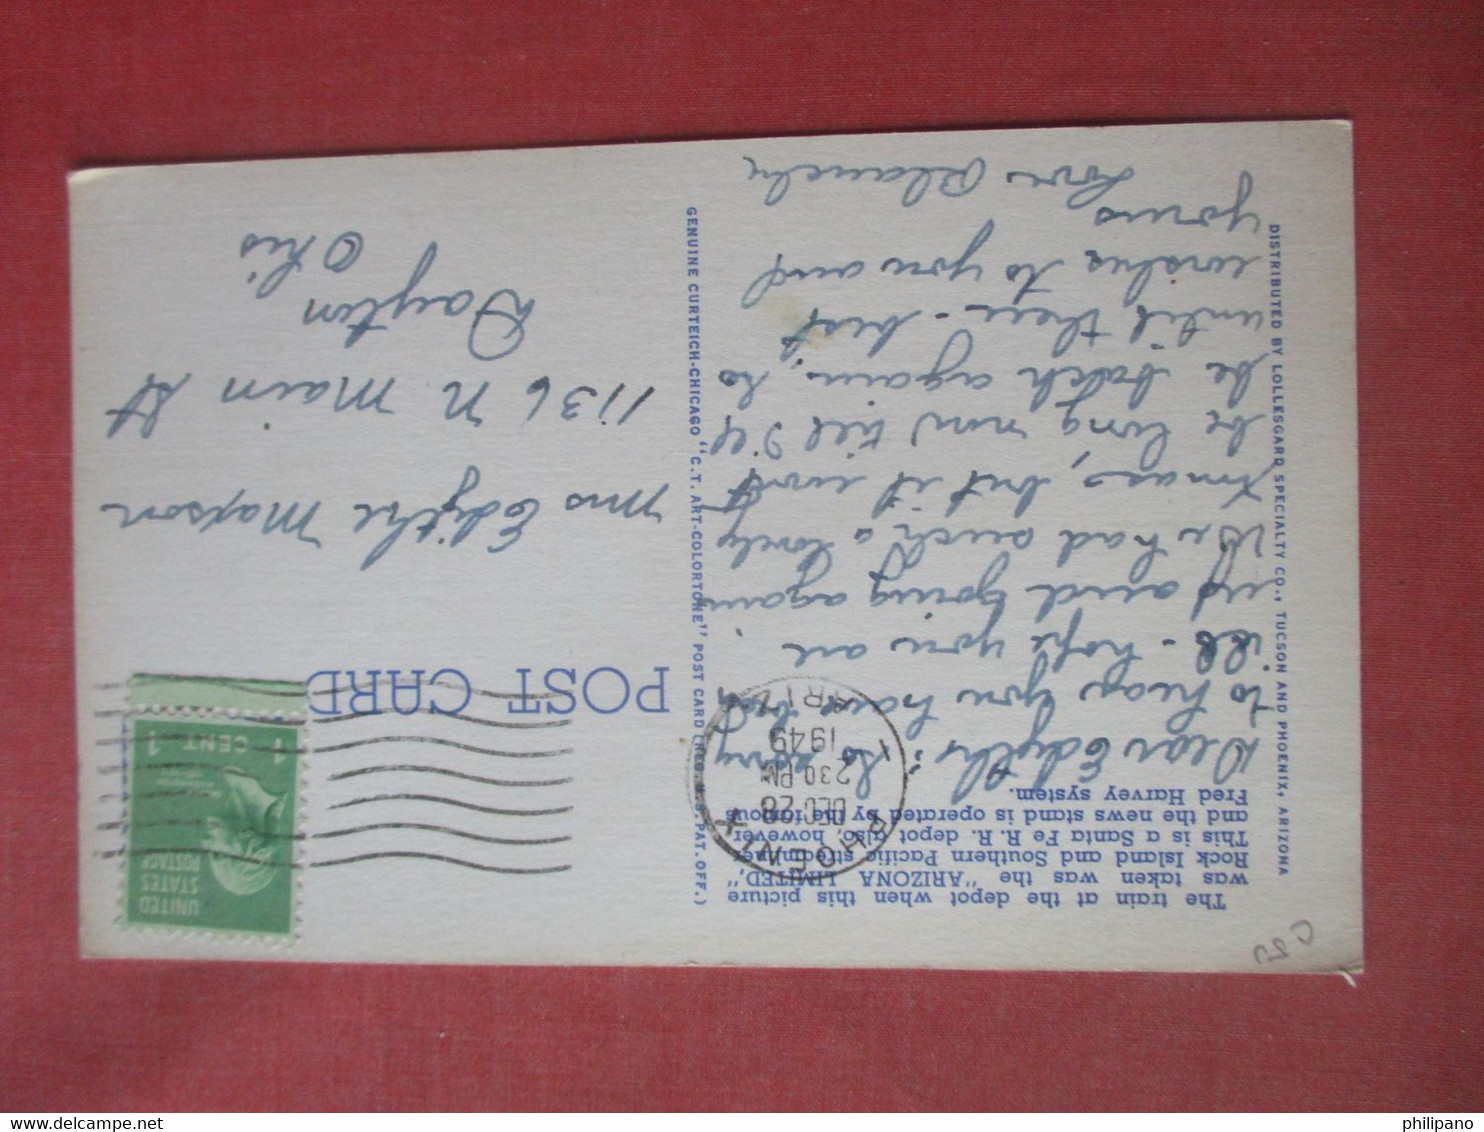 The train at the depot when this picture
was taken was the "ARIZONA LIMITED,"
Rock Island and Southern Pacific streamliner.
This is a Santa Fe R. R. depot also, however,
and the news stand is operated by the famous
Fred Harvey system.
Dear Edythe: So sorry
to hear you have been
ill - hope you are
up and going again
We had such a lovely
Xmas, but it wont
be long now till I'll
be back again, so
until then - best
wishes to you and
yours
Love
DISTRIBUTED BY LOLLESGARD SPECIALTY CO., TUCSON AND PHOENIX, ARIZONA
GENUINE CURTEICH-CHICAGO "C.T. ART-COLORTONE" POST CARD (REG. U.S. PAT. OFF.)
PHOENIX
DEC 28
2 30 PM
1949
ARIZ.
1
POST CARD
UNITED
STATES
POSTAGE
1 CENT 1
Mrs Edythe Maxson
1136 N Main St
Dayton
Ohio
philipano